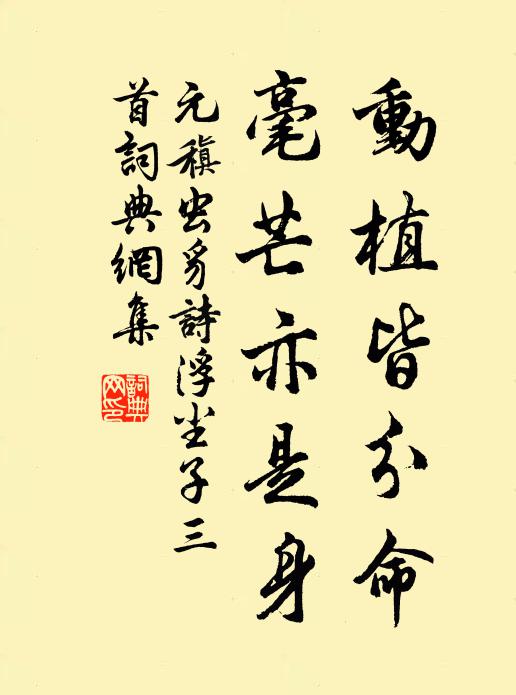 動植皆分命
毫芒亦是身
元稹虫豸詩浮尘子三
首詞典網集
詞典網印